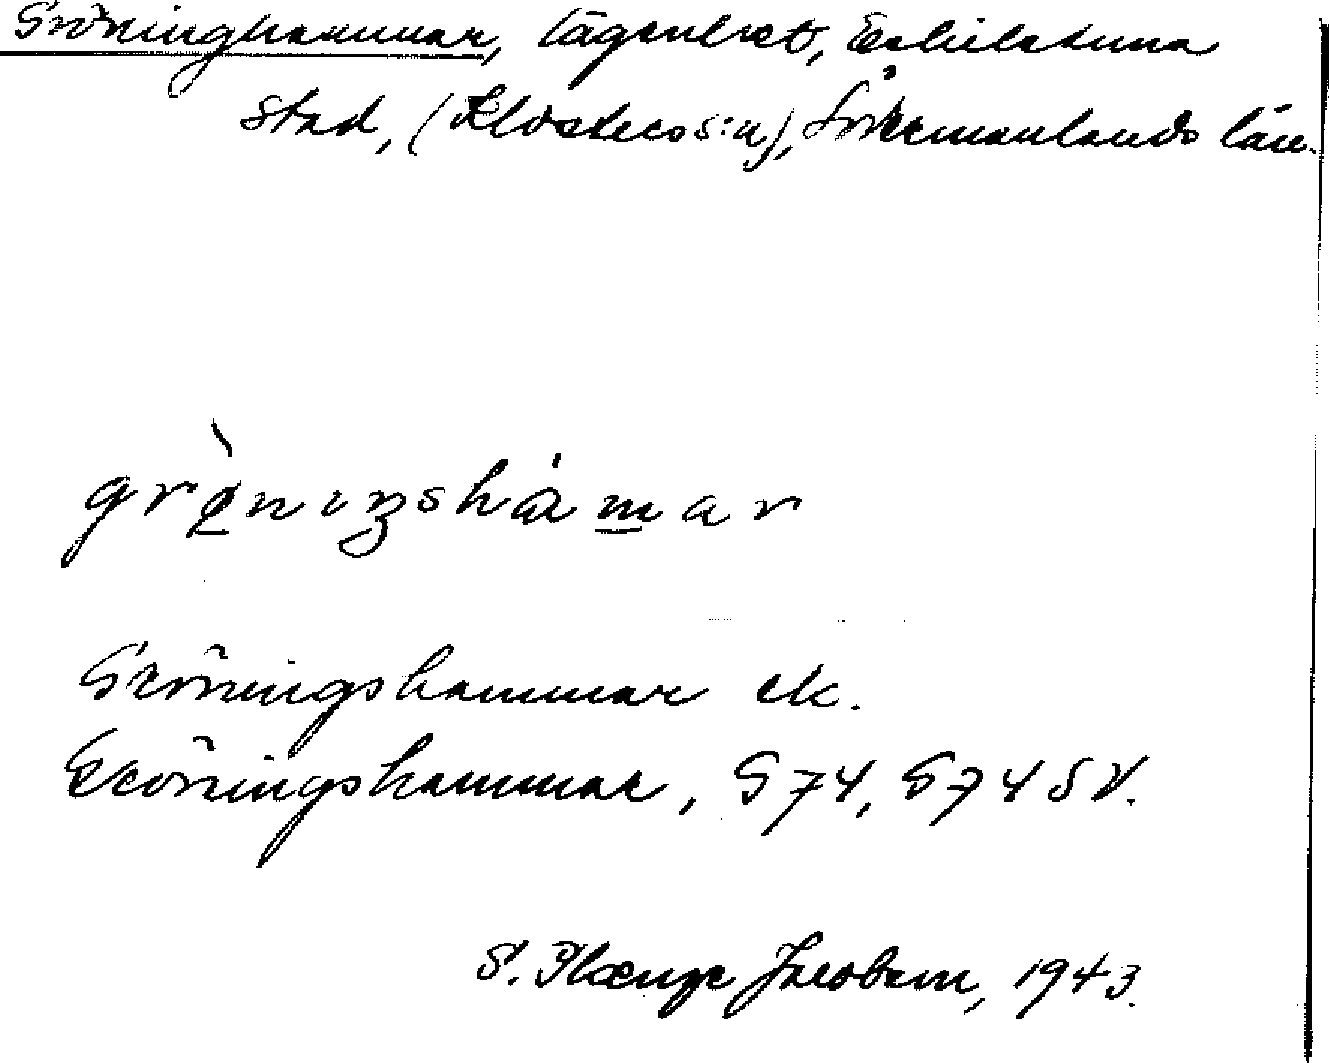 Gröninghammar, lägenhet, Eskilstuna
stad, (Klosters s:n), Södermanlands län.
grö̀nıŋshàmar
Gröningshammar ek.
Gröningshammar, G 74, G 74 SV.
S. Plænge Jacobson, 1943.